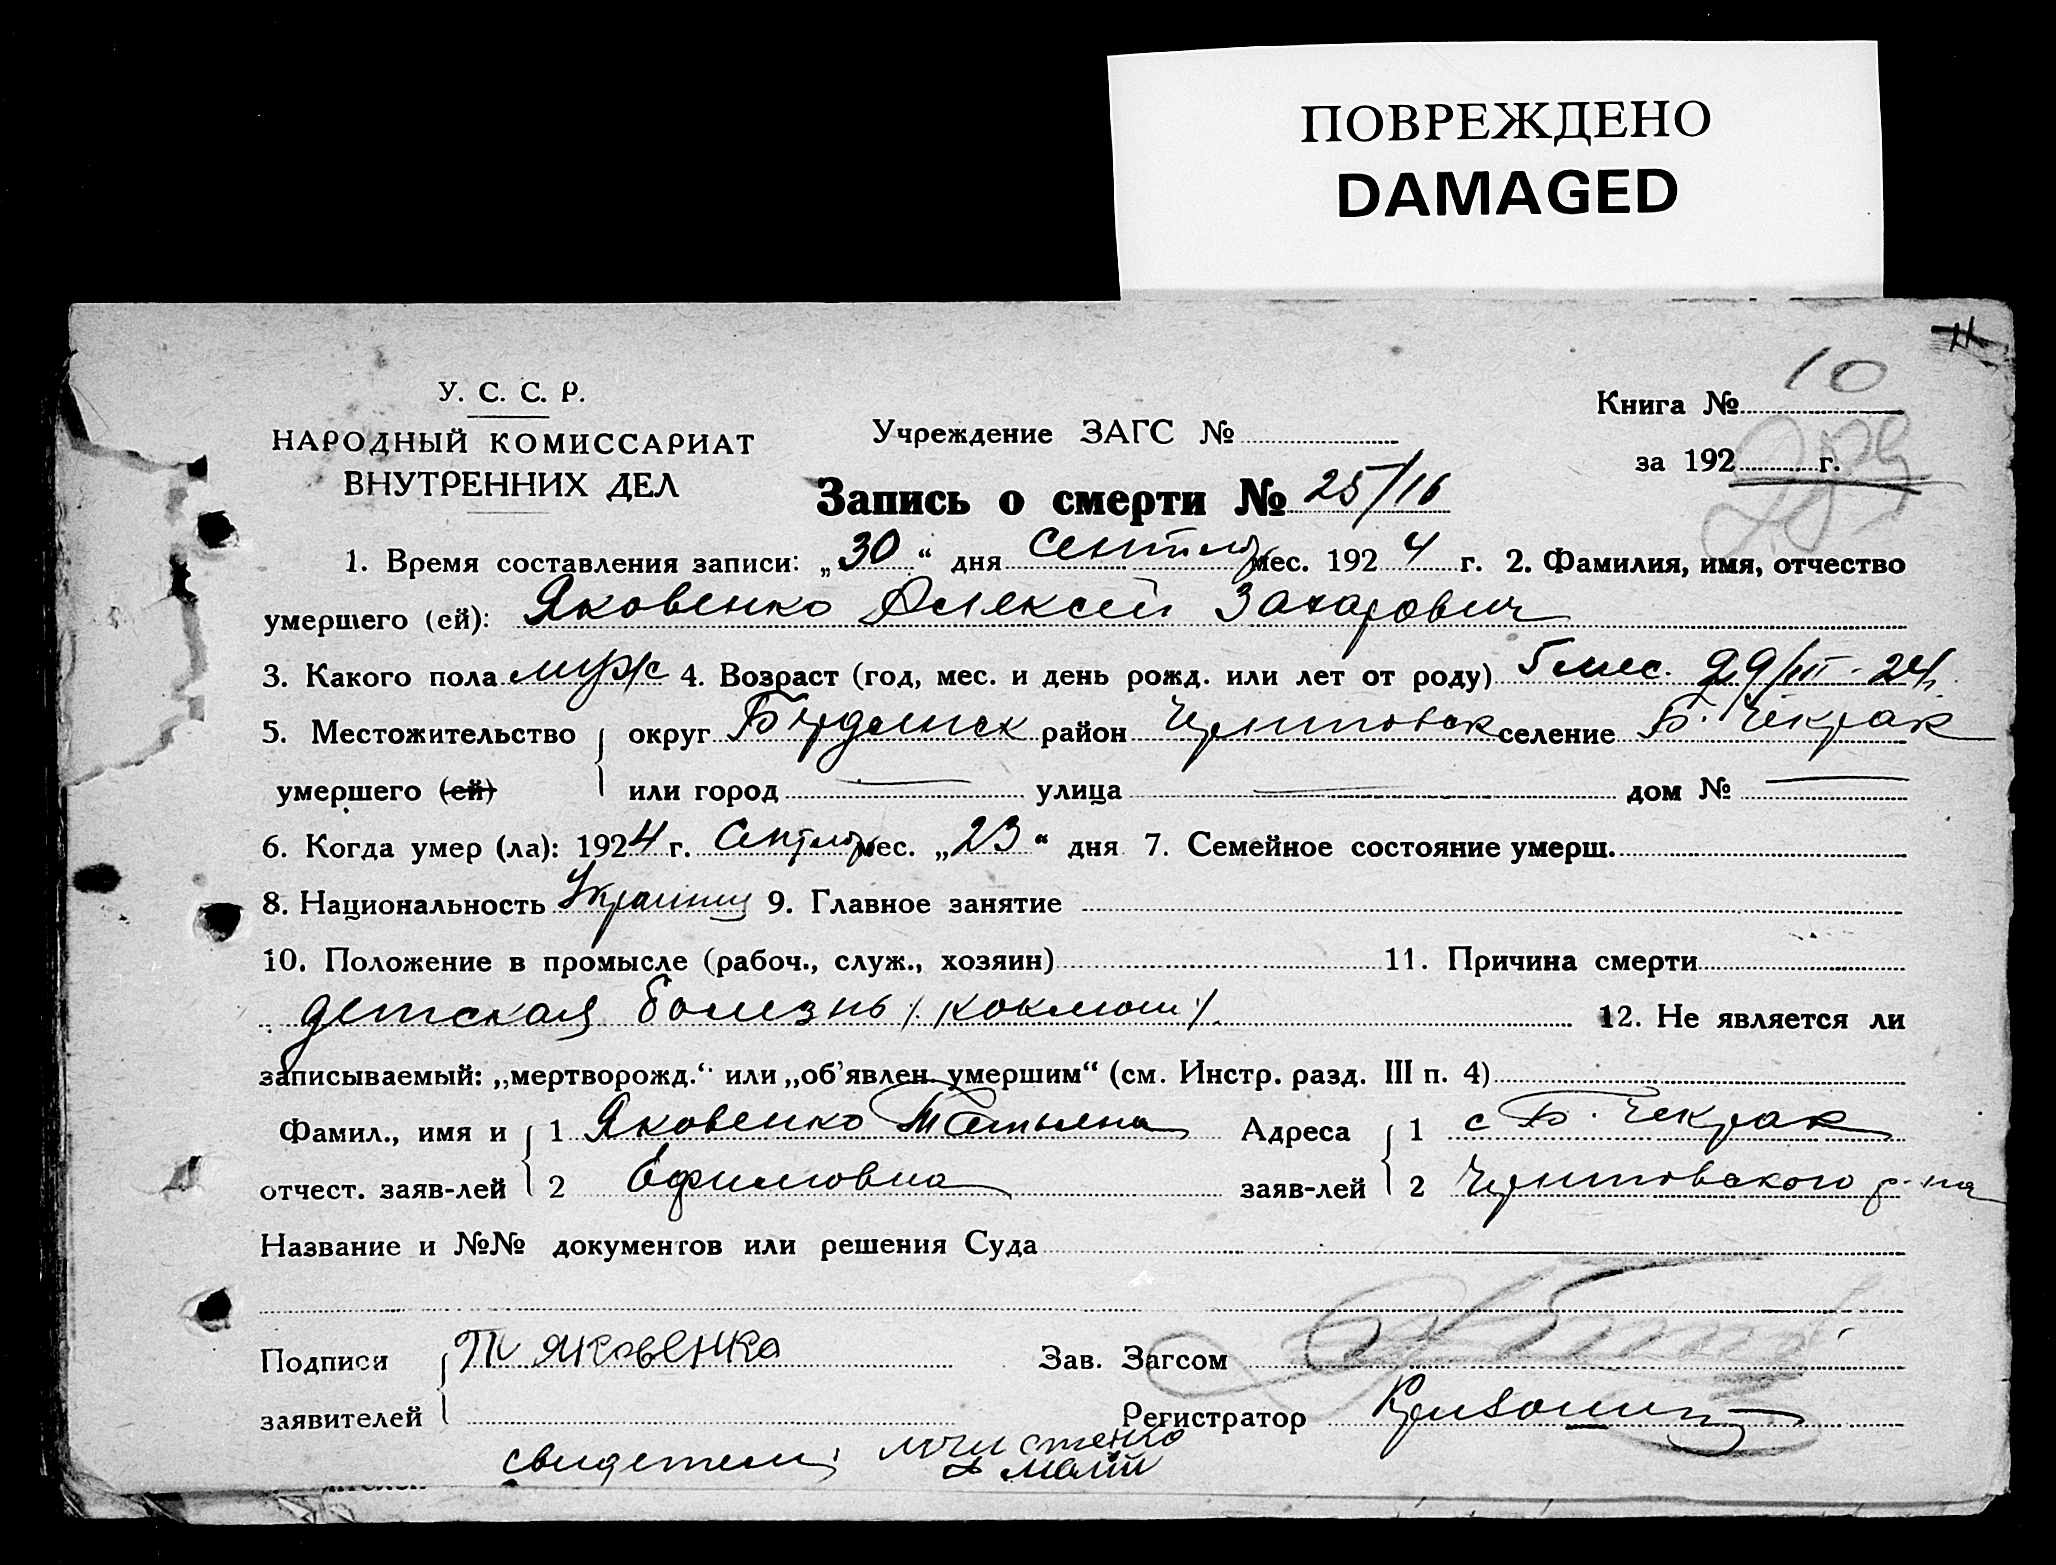 ПОВРЕЖДЕНО
DAMAGED
11
У. С. С. Р.
НАРОДНЫЙ КОМИССАРИАТ
ВНУТРЕННИХ ДЕЛ
Учреждение ЗАГС №
Книга № 10
за 192 г.
Запись о смерти № 25/16
1. Время составления записи: „30“ дня сентяб мес. 1924 г. 2. Фамилия, имя, отчество
умершего (ей): Яковенко Алексей Захарович
3. Какого пола муж 4. Возраст (год, мес. и день рожд. или лет от роду) 5 мес. 29/III-24 г.
5. Местожительство округ Бердянск район Черниговск селение Б. Чекрак
умершего (ей) или город — улица — дом № —
6. Когда умер (ла): 1924 г. Сентяб мес. „23“ дня 7. Семейное состояние умерш.
8. Национальность Украинц 9. Главное занятие
10. Положение в промысле (рабоч., служ., хозяин) 11. Причина смерти
детская болезнь /коклюш/. 12. Не является ли
записываемый: „мертворожд.“ или „об'явлен умершим“ (см. Инстр. разд. III п. 4)
Фамил., имя и 1 Яковенко Татьяна Адреса 1 с Б. Чекрак
отчест. заяв-лей 2 Ефимовна заяв-лей 2 Черниговского р-на
Название и №№ документов или решения Суда
Подписи Т Яковенко Зав. Загсом
заявителей Регистратор
свидетели